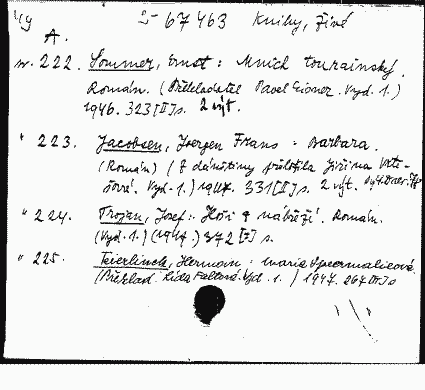 I- 67463 Knihy, živé
A.
sv. 222. Sommer, Ernst: Mnich tourainský.
Román. (Překladatel Pavel Eisner. Vyd. 1.)
1946. 323 [I] s. 2 výt.
" 223. Jacobsen, Joergen Frans: Barbara.
(Román) (Z dánštiny přeložila Jiřina Vrti-
šová. Vyd. 1.) 1947. 331 [I] s. 2 výt.
" 224. Trojan, Josef: Hoši z nábřeží. Román.
(Vyd. 1.) (1947.) 372 [I] s.
" 225. Teirlinck, Herman: Maria Speermalieová.
(Překlad. Lída Faltová. Vyd. 1.) 1947. 267 [I] s